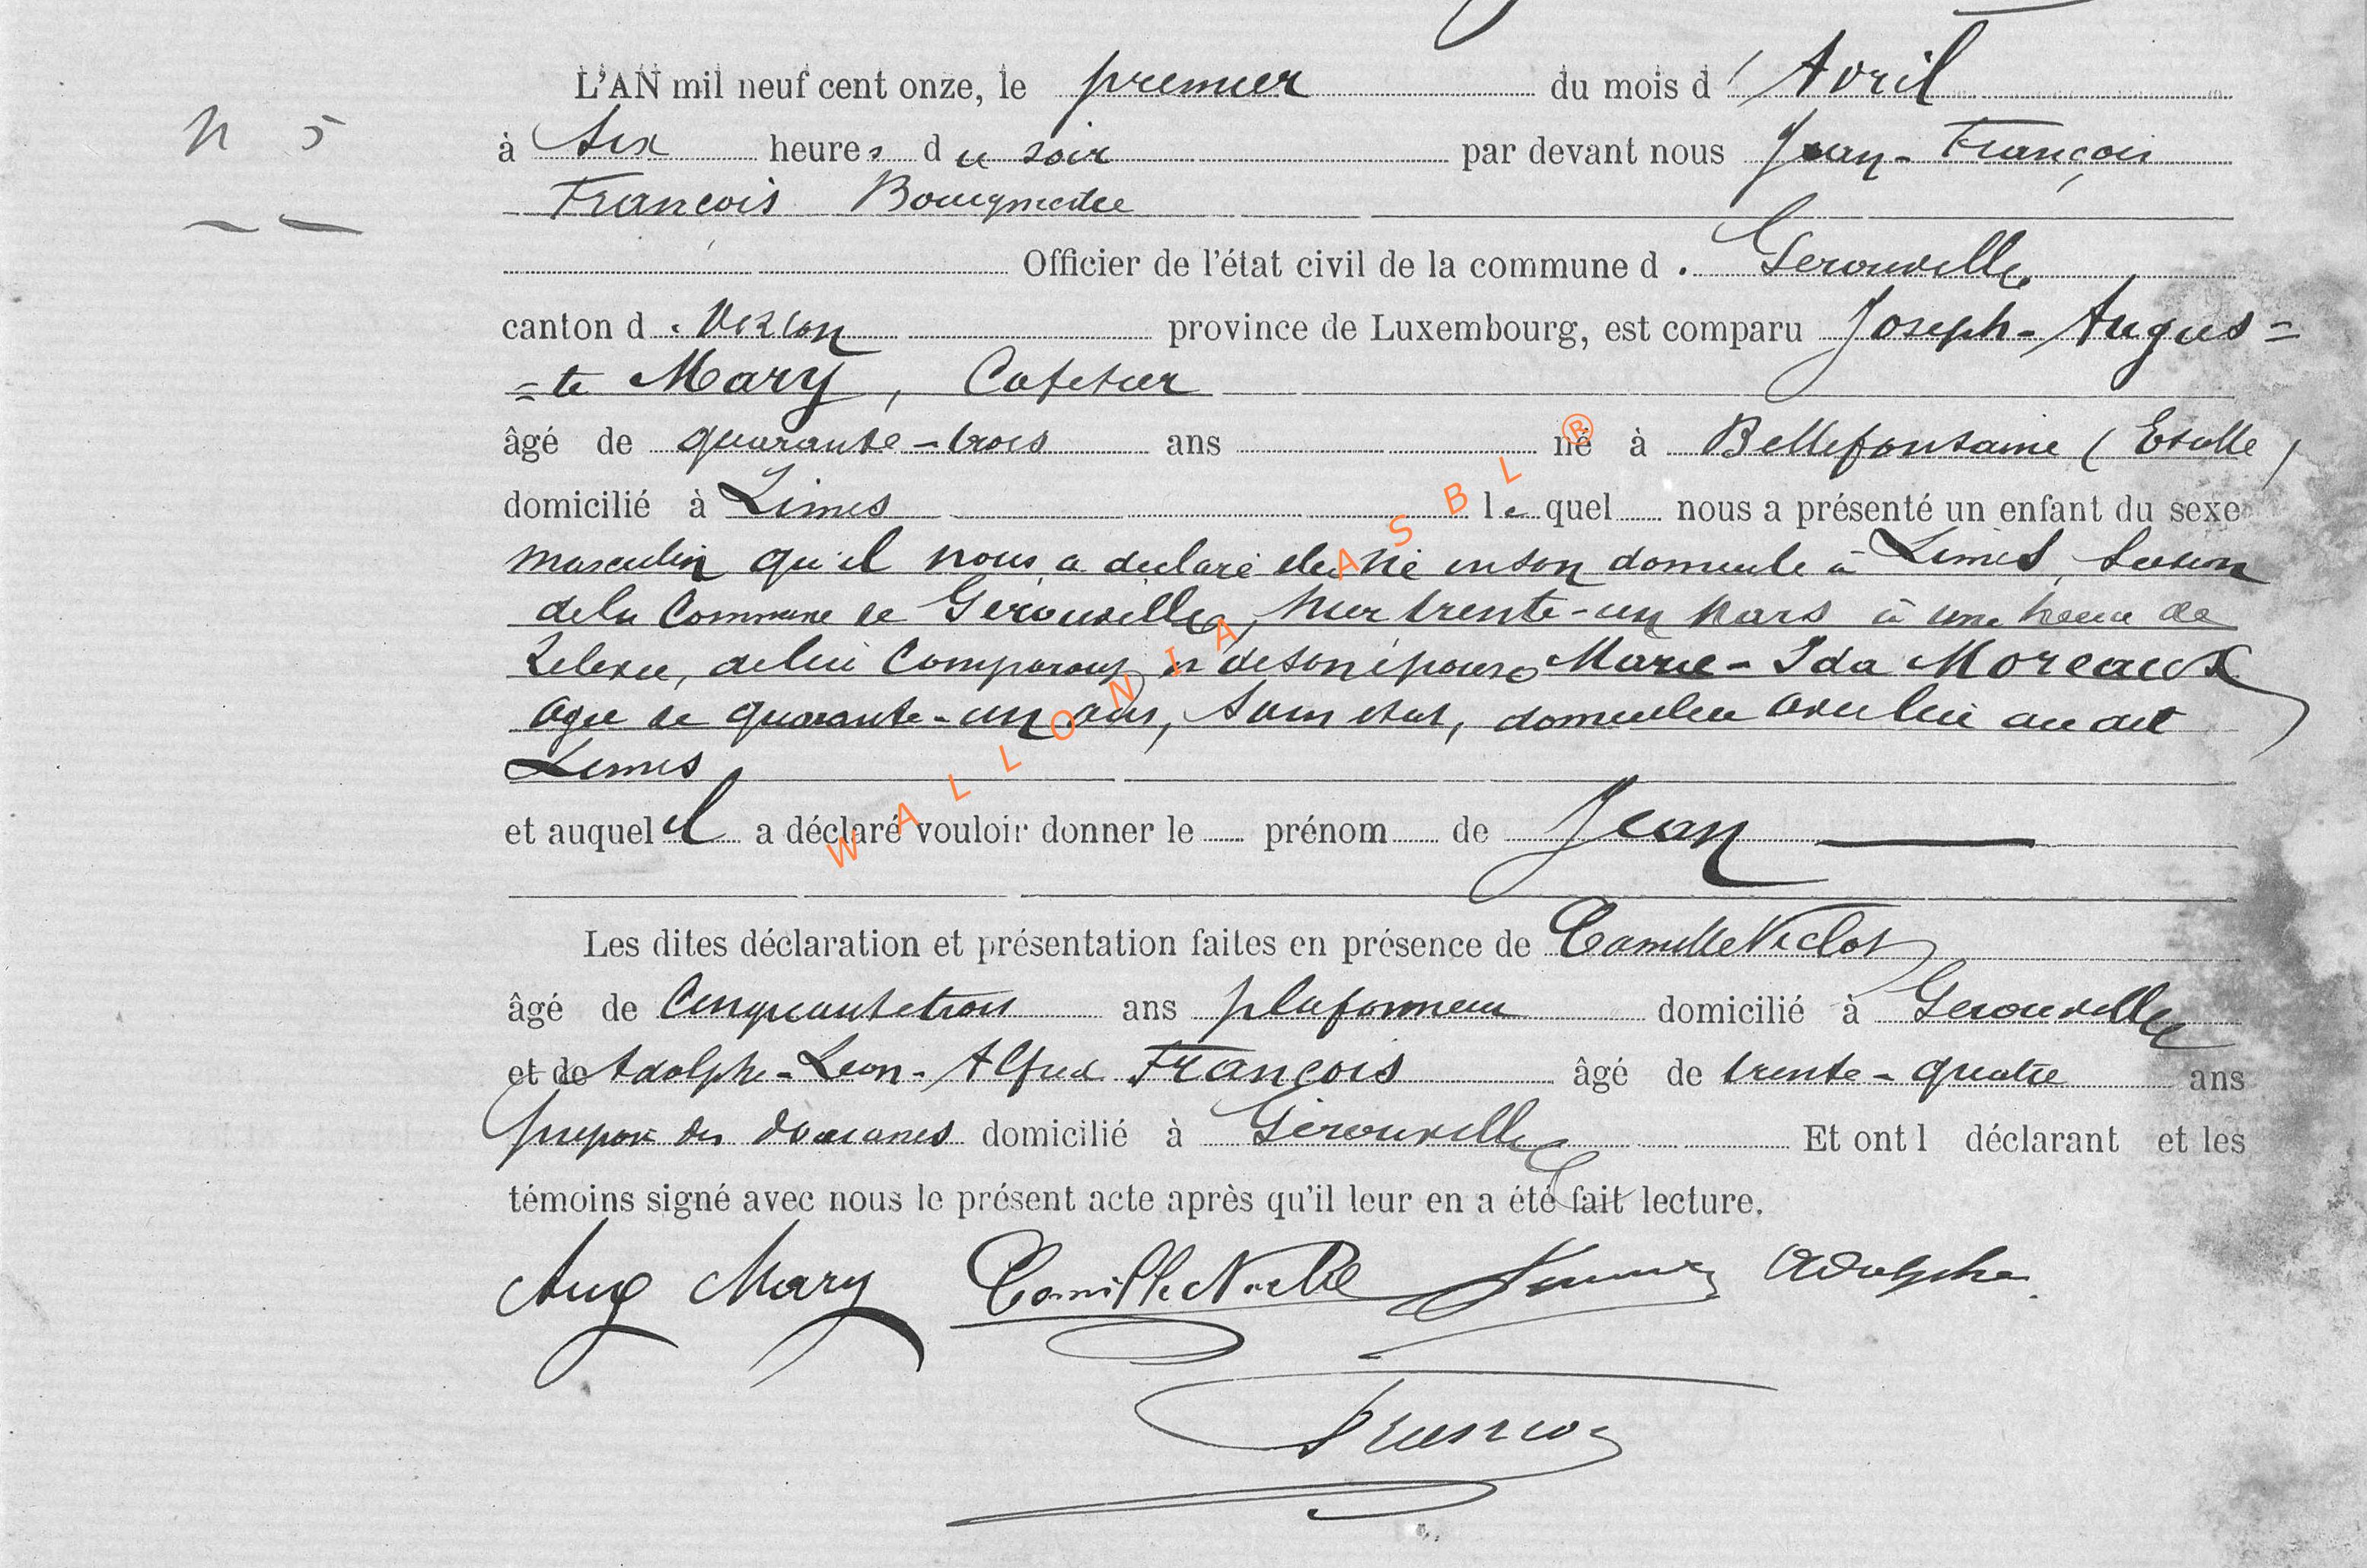 L'AN mil neuf cent onze, le premier du mois d' Avril
N 5
à Six heures du soir par devant nous Jean-François
François Bourgmestre
Officier de l'état civil de la commune de Gerouville
canton de Virton province de Luxembourg, est comparu Joseph-Augus=
=te Mary, Cafetier
âgé de quarante-trois ans né à Bellefontaine (Etalle)
domicilié à Limes lequel nous a présenté un enfant du sexe
masculin qu'il nous a déclaré être né en son domicile à Limes, Section
de la Commune de Gerouville, hier trente-un Mars à une heure de
relevée, de lui Comparant et de son épouse Marie-Ida Moreaux
agée de quarante-un ans, Sans état, domiciliée avec lui au dit
Limes
et auquel il a déclaré vouloir donner le prénom de Jean
Les dites déclaration et présentation faites en présence de Camille
âgé de Cinquante trois ans plafonneur domicilié à Gerouville
et de Adolphe-Leon-Alfred François âgé de trente-quatre ans
préposé des douanes domicilié à Gérouville Et ont l déclarant et les
témoins signé avec nous le présent acte après qu'il leur en a été fait lecture.
Aug Mary Camille Adolphe
François
WALLONIA ASBL ®